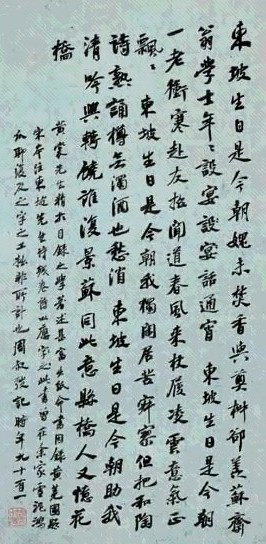 東坡生日是今朝媿未焚香與奠椒卻羨蘇齋
翁學士年〻設宴話通宵 東坡生日是今朝
一老衝寒赴友招聞道春風來杖履凌雲意氣正
飄〻 東坡生日是今朝我獨閒居苦寂寥但把和陶
詩熟誦樽無濁酒也愁消 東坡生日是今朝助我
清吟興轉饒誰復景蘇同此意縣橋人又憶花
橋
黃裳先生精於目錄之學著述甚富出紙命書因錄黃蕘圃題
宋本注東坡先生詩殘卷詩以應之此書曾在余家雪泥鴻
爪聊復及之字之工拙非所計也周叔弢記時年九十有一